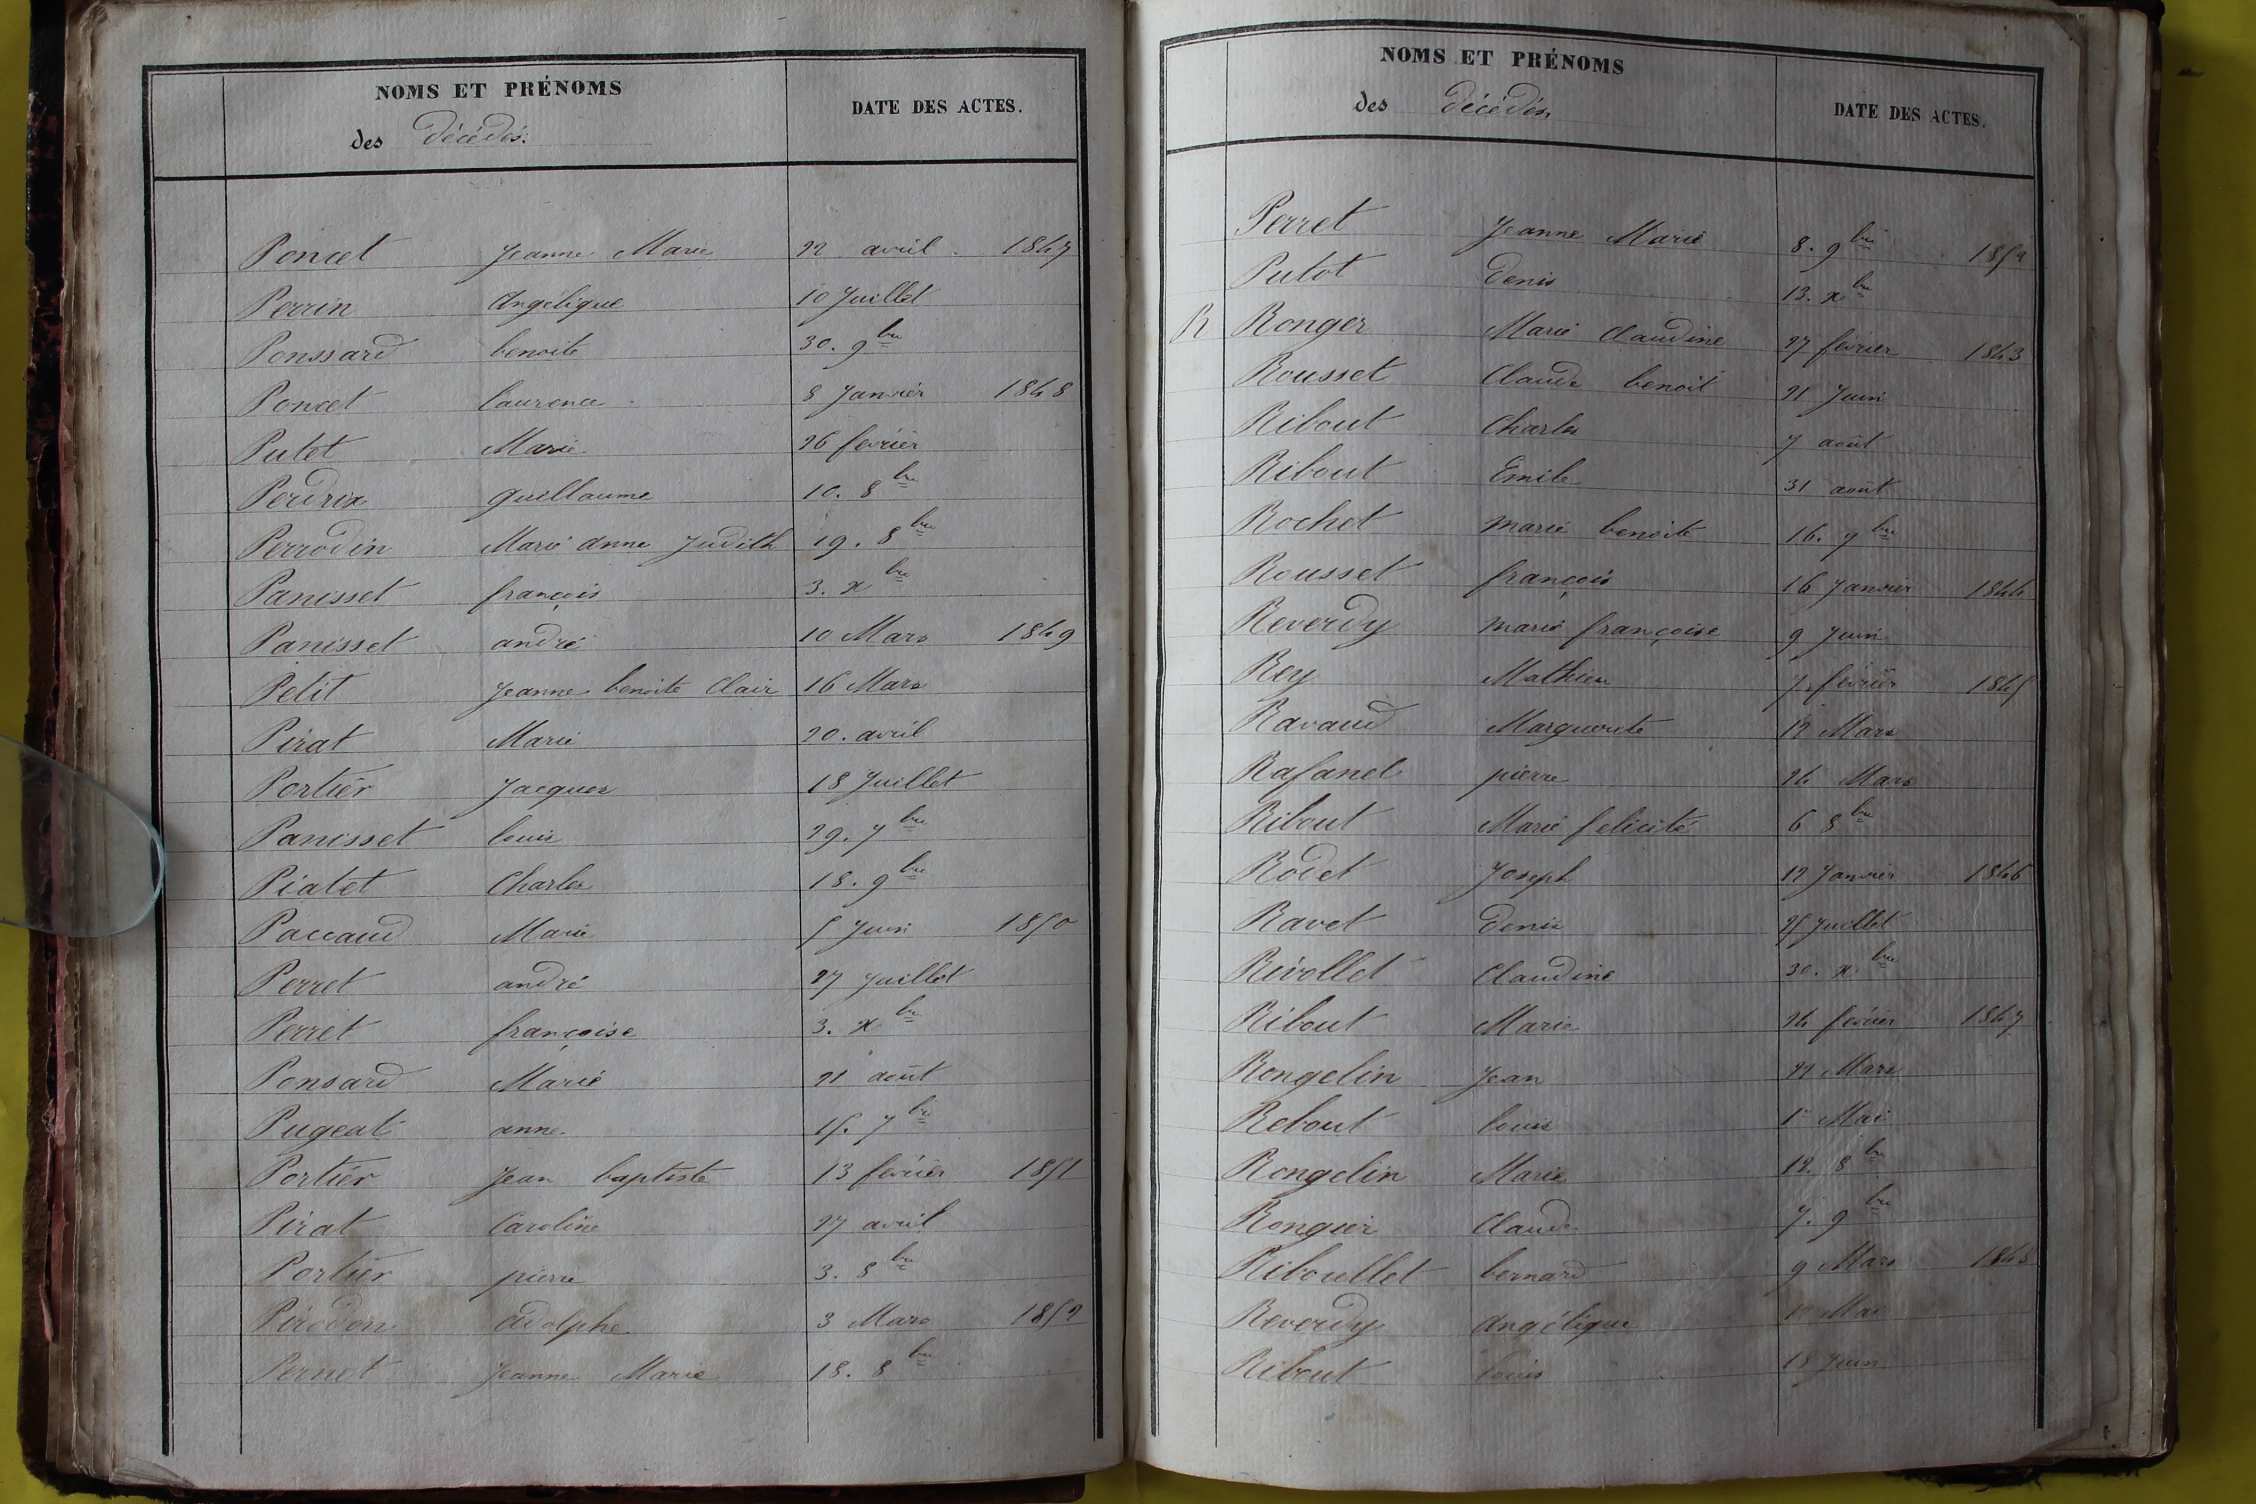 NOMS ET PRÉNOMS
des Décédés.
DATE DES ACTES.
Poncet Jeanne Marie 22 avril 1847
Perrin Angélique 10 Juillet
Ponssard benoite 30. 9bre
Poncet laurence 8 Janvier 1848
Putet Marie 26 fevrier
Perdrix guillaume 10. 8bre
Perrodin Marie anne Judith 19. 8bre
Panisset françois 3. xbre
Panisset andré 10 Mars 1849
Petit Jeanne benoite Clair 16 Mars
Pirat Marie 20. avril
Portier Jacques 18 Juillet
Panisset louis 29. 7bre
Piatet Charles 18. 9bre
Paccaud Marie 5 Juin 1850
Perret andré 27 Juillet
Perret françoise 3. xbre
Ponsard Marie 21 août
Pugeat anne 15. 7bre
Portier Jean baptiste 13 fevrier 1851
Pirat Caroline 27 avril
Portier pierre 3. 8bre
Pirodon Adolphe 3 Mars 1852
Pernet Jeanne Marie 18. 8bre
NOMS ET PRÉNOMS
des Décédés,
DATE DES ACTES.
Perret Jeanne Marie 8. 9bre 1852
Putot Denis 13. xbre
R Ronger Marie Claudine 27 fevrier 1843
Rousset Claude benoit 21 Juin
Ribout Charles 7 août
Ribout Emile 31 août
Rochet marie benoite 16. 9bre
Rousset françois 16 Janvier 1844
Reverdy marie françoise 9 Juin
Rey Mathieu 7. fevrier 1845
Ravaud Marguerite 12 Mars
Rafanel pierre 24 Mars
Ribout Marie felicité 6 8bre
Rodet Joseph 12 Janvier 1846
Ravet Denis 25 Juillet
Rivollet Claudine 30. xbre
Ribout Marie 24 fevrier 1847
Rongelin Jean 22 Mars
Rebout louis 1er Mai
Rongelin Marie 12. 8bre
Rongier Claude 7. 9bre
Riboullet bernard 9 Mars 1848
Reverdy Angélique Mai
Ribout louis 18 Juin